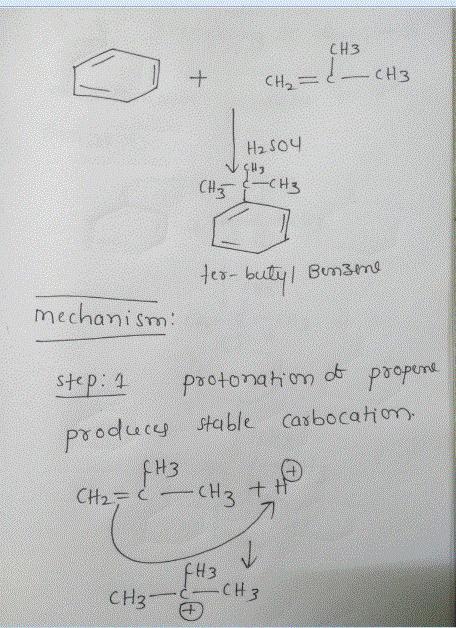 CH3
+ CH2=C-CH3
H2SO4
CH3
CH3-C-CH3
ter-butyl Benzene
mechanism:
step: 1 protonation of propene
produces stable carbocation.
CH3
CH2=C-CH3 + H+
CH3
CH3-C-CH3
+